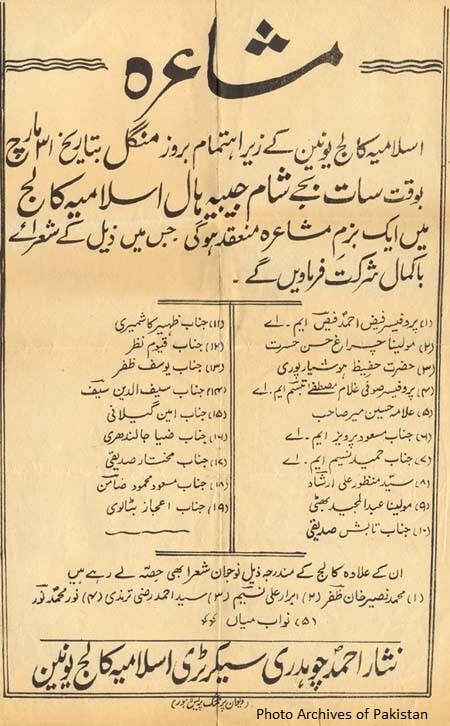 مشاعرہ
اسلامیہ کالج یونین کے زیر اہتمام بروز منگل بتاریخ ۳۱ مارچ
بوقت سات بجے شام حبیبیہ ہال اسلامیہ کالج
میں ایک بزم مشاعرہ منعقد ہوگی۔ جس میں ذیل کے شعرائے
باکمال شرکت فرماویں گے۔
(۱) پروفیسر فیض احمد فیضؔ ایم۔ اے
(۲) مولینا چراغ حسن حسرت
(۳) حضرت حفیظ ہوشیارپوری
(۴) پروفیسر صوفی غلام مصطفےٰ تبسم ایم۔ اے
(۵) علامہ حسین میر صاحب
(۶) جناب مسعود پرویز ایم۔ اے
(۷) جناب حمید نسیم ایم۔ اے
(۸) سید منظور علی ارشاد
(۹) مولینا عبدالمجید بھٹی
(۱۰) جناب تابش صدیقی
(۱۱) جناب ظہیر کاشمیری
(۱۲) جناب قیوم نظر
(۱۳) جناب یوسف ظفر
(۱۴) جناب سیف الدین سیف
(۱۵) جناب امین گیلانی
(۱۶) جناب ضیا جالندھری
(۱۷) جناب مختار صدیقی
(۱۸) جناب مسعود محمود ضامن
(۱۹) جناب اعجاز بٹالوی
ان کے علاوہ کالج کے مندرجہ ذیل نوجوان شعرا بھی حصہ لے رہے ہیں
(۱) محمد نصیر خان ظفر (۲) ابرار علی نسیم (۳) سید احمد رضی ترمذی (۴) نور محمد نور
(۵) نواب میاں
نثار احمد چوہدری سیکرٹری اسلامیہ کالج یونین
Photo Archives of Pakistan